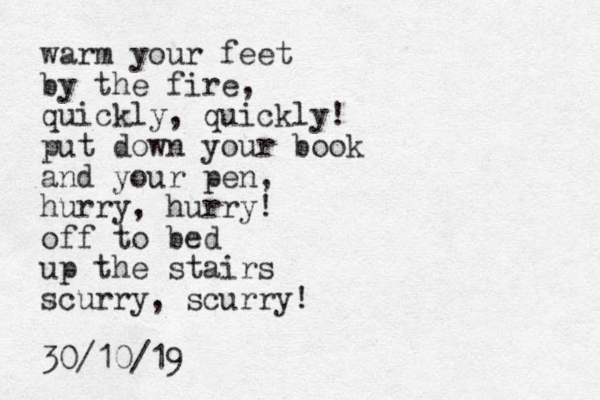 warm your feet
by the fire,
quickly, quickly!
put down your book
and your pen,
hurry, hurry!
off to bed
up the stairs
scurry, scurry!
30/10/19